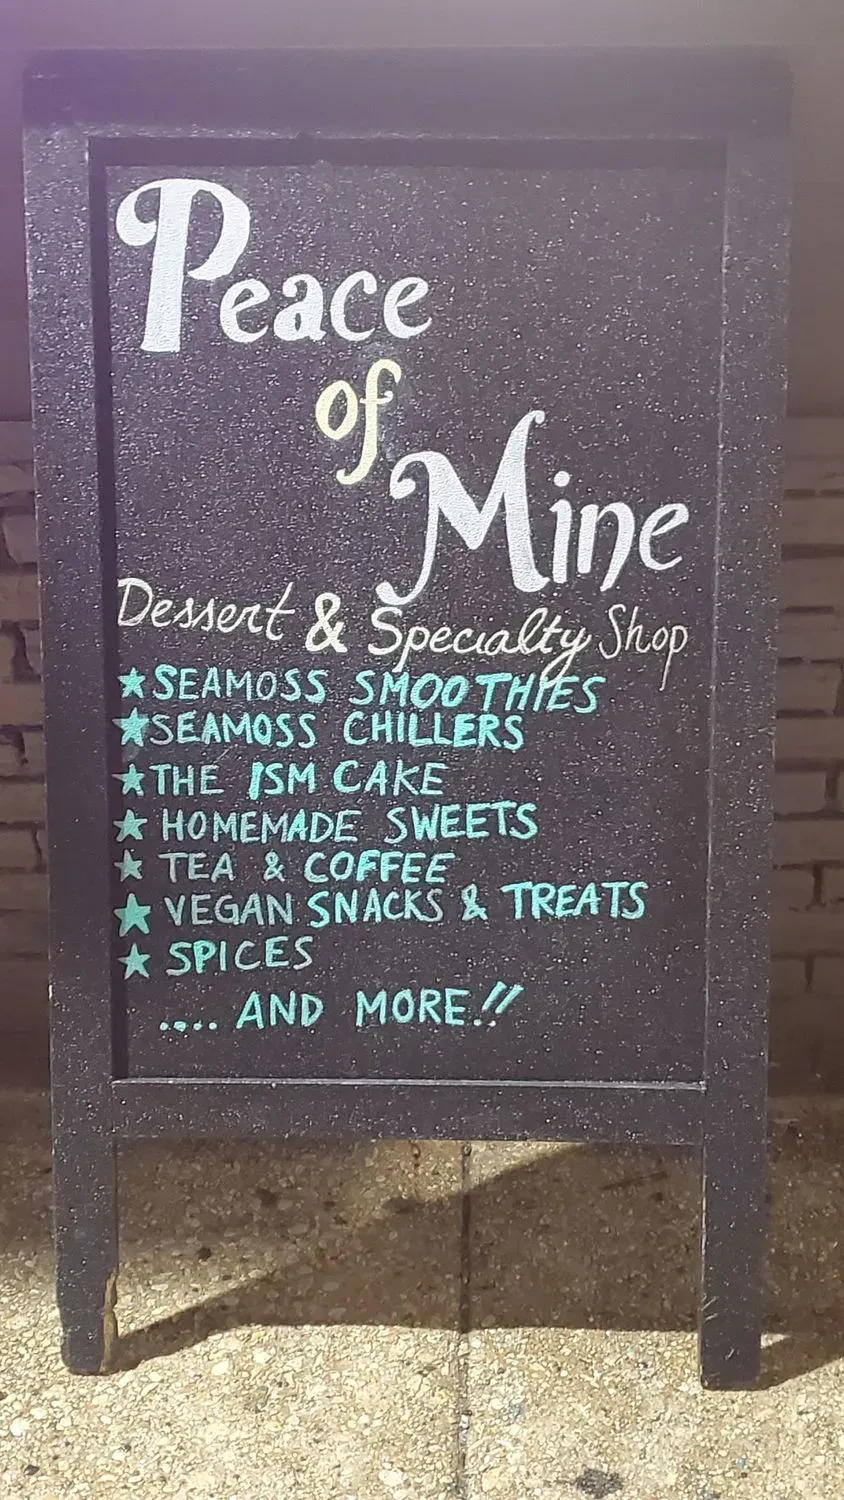 Peace
of
Mine
Dessert & Specialty Shop
★SEAMOSS SMOOTHIES
★SEAMOSS CHILLERS
★THE ISM CAKE
★ HOMEMADE SWEETS
★ TEA & COFFEE
★ VEGAN SNACKS & TREATS
★ SPICES
.... AND MORE!!